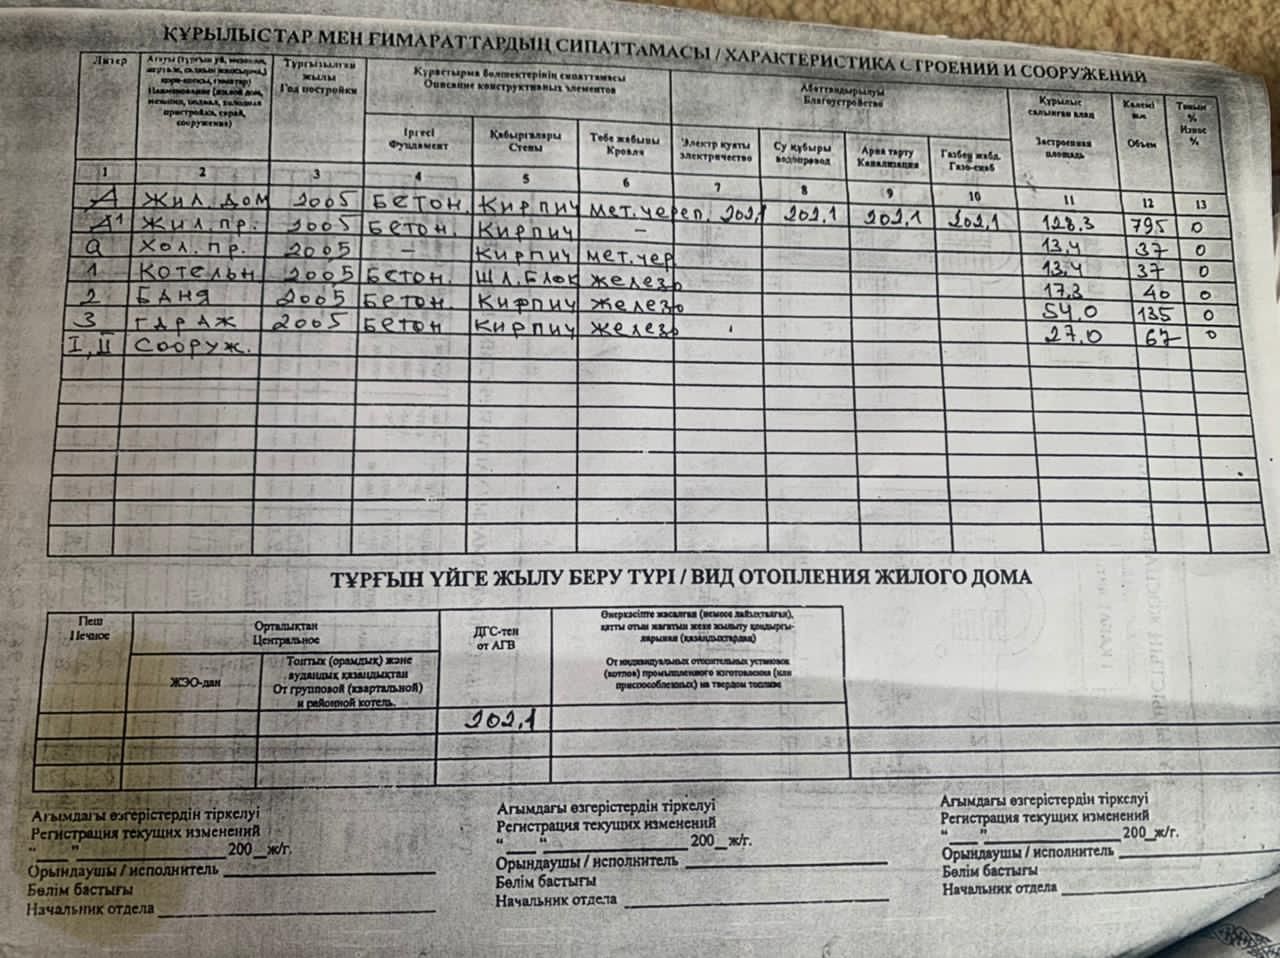 ҚҰРЫЛЫСТАР МЕН ҒИМАРАТТАРДЫҢ СИПАТТАМАСЫ / ХАРАКТЕРИСТИКА СТРОЕНИЙ И СООРУЖЕНИЙ
Литер
Наименование (жилой дом,
сооружения)
Тұрғызылған
жылы
Год постройки
Құрастырма бөлшектерінің сипаттамасы
Описание конструктивных элементов
Іргесі
Фундамент
Қабырғалары
Стены
Төбе жабыны
Кровля
Абаттандырылуы
Благоустройство
Электр қуаты
электричество
Су құбыры
водопровод
Арна тарту
Канализация
Газбен жабд.
Газо-снаб
Құрылыс
салынған алаң
Застроенная
площадь
Көлемі
Объем
Тозым
%
Износ
%
1 2 3 4 5 6 7 8 9 10 11 12 13
А ЖИЛ. ДОМ 2005 БЕТОН. КИРПИЧ МЕТ.ЧЕРЕП. 202,1 202,1 202,1 202,1 128,3 795 0
А1 ЖИЛ. ПР. 2005 БЕТОН. КИРПИЧ – 13,4 37 0
а ХОЛ. ПР. 2005 – КИРПИЧ МЕТ.ЧЕР 13,4 37 0
1 КОТЕЛЬН 2005 БЕТОН. ШЛ.БЛОК ЖЕЛЕЗО 17,3 40 0
2 БАНЯ 2005 БЕТОН. КИРПИЧ ЖЕЛЕЗО 54,0 135 0
3 ГАРАЖ 2005 БЕТОН КИРПИЧ ЖЕЛЕЗО 27,0 67 0
I, II СООРУЖ.
ТҰРҒЫН ҮЙГЕ ЖЫЛУ БЕРУ ТҮРІ / ВИД ОТОПЛЕНИЯ ЖИЛОГО ДОМА
Пеш
Печное
Орталықтан
Центральное
ЖЭО-дан
Топтық (орамдық) және
аудандық қазандықтан
От групповой (квартальной)
и районной котель.
ДГС-тен
от АГВ
Өнеркәсіпте жасалған (немесе лайықталған),
қатты отын жағатын жеке жылыту қондырғы-
ларынан (қазандықтардан)
От индивидуальных отопительных установок
(котлов) промышленного изготовления (или
приспособленных) на твердом топливе
202,1
Ағымдағы өзгерістердің тіркелуі
Регистрация текущих изменений
"___" ____________ 200__ж/г.
Орындаушы / исполнитель ____________
Бөлім бастығы
Начальник отдела ____________
Ағымдағы өзгерістердің тіркелуі
Регистрация текущих изменений
"___" ____________ 200__ж/г.
Орындаушы / исполнитель ____________
Бөлім бастығы
Начальник отдела ____________
Ағымдағы өзгерістердің тіркелуі
Регистрация текущих изменений
"___" ____________ 200__ж/г.
Орындаушы / исполнитель ____________
Бөлім бастығы
Начальник отдела ____________